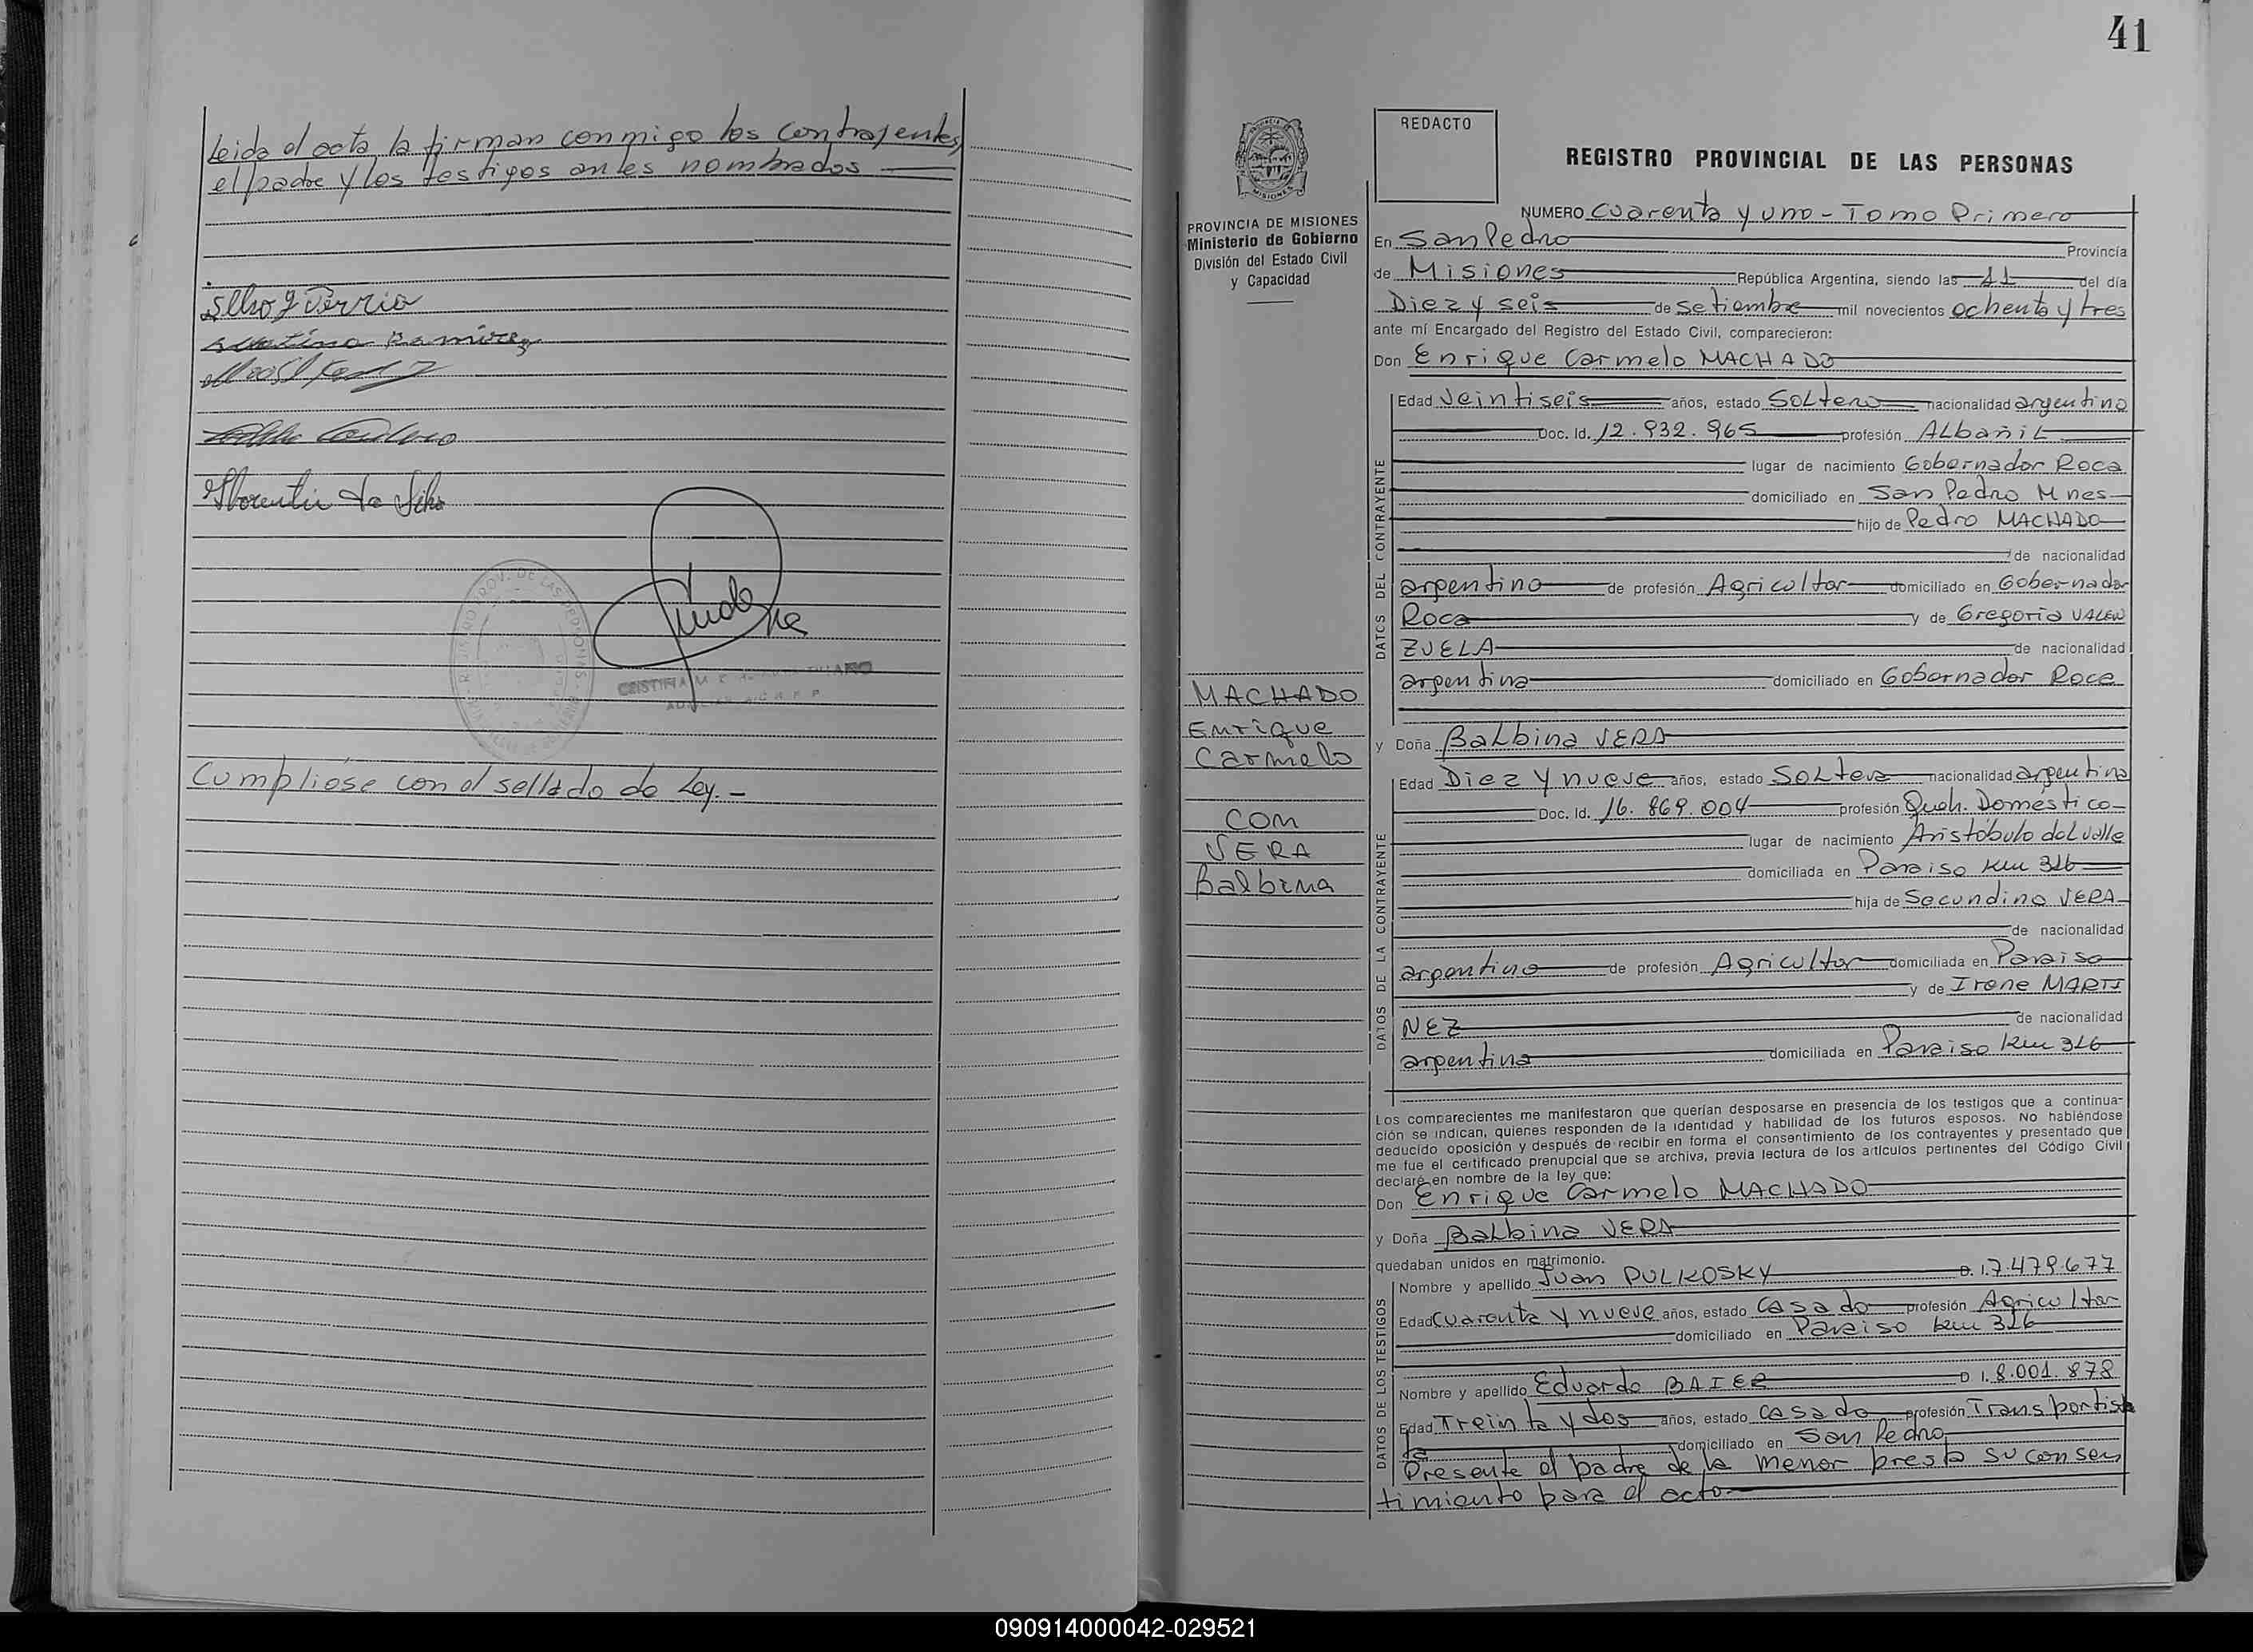 Leida el acta, la firman conmigo los contrayentes,
el padre y los testigos antes nombrados
Ramirez
Florentin Da Silva
Cumplióse con el sellado de Ley.-
41
REDACTO
REGISTRO PROVINCIAL DE LAS PERSONAS
PROVINCIA DE MISIONES
Ministerio de Gobierno
División del Estado Civil
y Capacidad
MACHADO
Enrique
Carmelo
con
VERA
Balbina
NUMERO Cuarenta y uno - Tomo Primero
En San Pedro Provincia
de Misiones República Argentina, siendo las 11 del día
Diez y seis de setiembre mil novecientos ochenta y tres
ante mí Encargado del Registro del Estado Civil, comparecieron:
Don Enrique Carmelo MACHADO
DATOS DEL CONTRAYENTE
Edad Veintiseis años, estado Soltero nacionalidad argentino
Doc. Id. 12.932.965 profesión Albañil
lugar de nacimiento Gobernador Roca
domiciliado en San Pedro Mnes
hijo de Pedro MACHADO
de nacionalidad
argentino de profesión Agricultor domiciliado en Gobernador
Roca y de Gregoria VALEN
ZUELA de nacionalidad
argentina domiciliado en Gobernador Roca
y Doña Balbina VERA
DATOS DE LA CONTRAYENTE
Edad Diez y nueve años, estado Soltera nacionalidad argentina
Doc. Id. 16.869.004 profesión Queh. Doméstico
lugar de nacimiento Aristóbulo del Valle
domiciliada en Paraiso km 326
hija de Secundino VERA
de nacionalidad
argentino de profesión Agricultor domiciliada en Paraiso
y de Irene MARTI
NEZ de nacionalidad
argentina domiciliada en Paraiso km 326
Los comparecientes me manifestaron que querían desposarse en presencia de los testigos que a continua-
ción se indican, quienes responden de la identidad y habilidad de los futuros esposos. No habiéndose
deducido oposición y después de recibir en forma el consentimiento de los contrayentes y presentado que
me fue el certificado prenupcial que se archiva, previa lectura de los artículos pertinentes del Código Civil
declaré en nombre de la ley que:
Don Enrique Carmelo MACHADO
y Doña Balbina VERA
quedaban unidos en matrimonio.
DATOS DE LOS TESTIGOS
Nombre y apellido Juan PULKOSKY D. I. 7.479.677
Edad Cuarenta y nueve años, estado Casado profesión Agricultor
domiciliado en Paraiso km 326
Nombre y apellido Eduardo BAIER D I. 8.001.878
Edad Treinta y dos años, estado Casado profesión Transportista
domiciliado en San Pedro
Presente el padre de la menor presta su consen
timiento para el acto
090914000042-029521